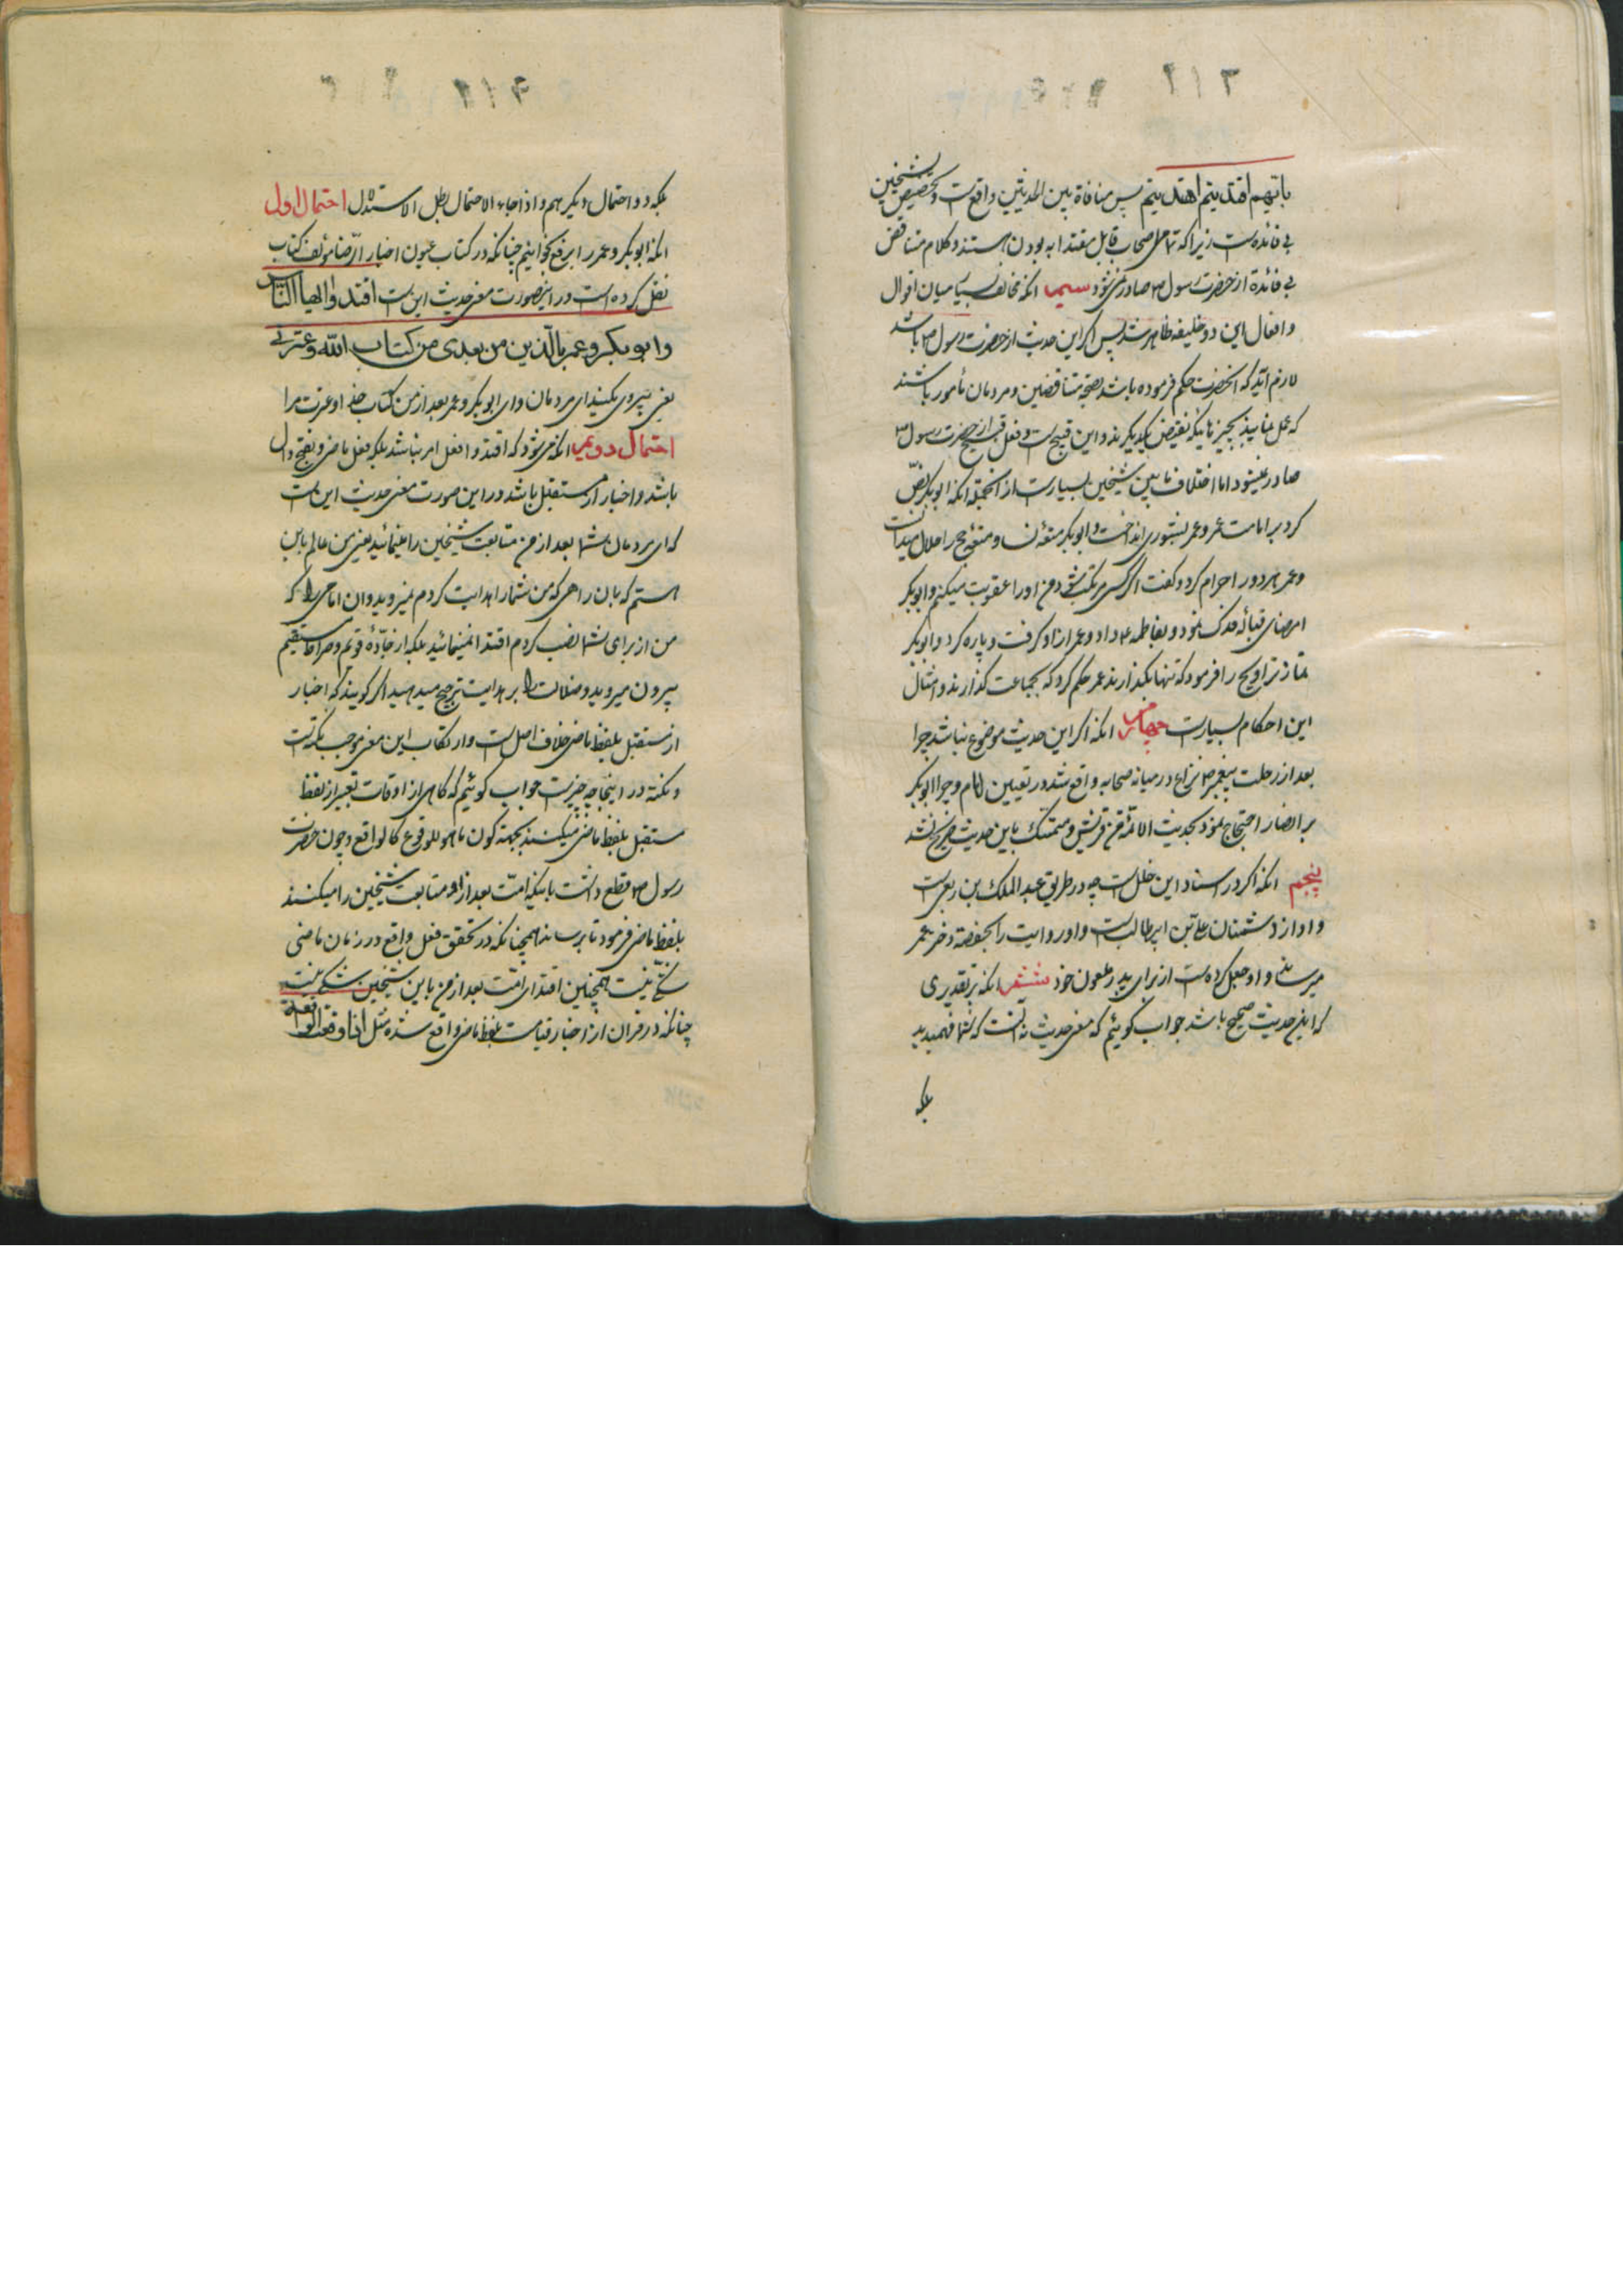 بایهم اقتدیتم اهتدیتم پس منافاة بین الحدیثین واقعست و تخصیص شیخین
بی فائده است زیرا که تمامی صحابه قابل مقتدا به بودن هستند و کلام متناقض
بی فائدة از حضرت رسول ص صادر نمی شود سیم انکه مخالفت بسیار میان اقوال
و افعال این دو خلیفه ظاهر شد پس اکر این حدیث از حضرت رسول ص باشد
لازم آید که انحضرت حکم فرموده باشد بصحة متناقضین و مردمان مأمور باشند
که عمل نمایند بچیزهائیکه نقیض یکدیکرند و این قبیح است و فعل قبیح از حضرت رسول ص
صادر نمیشود اما اختلاف مابین شیخین بسیار است از انجمله انکه ابوبکر نص
کرد بر امامت عمر و عمر بشوری انداخت و ابوبکر متعه نسا و متعه حج را حلال میدانست
و عمر هر دو را حرام کرد و کفت اکر کسی مرتکب شود من او را عقوبت میکنم و ابوبکر
امضای قباله فدک نمود و بفاطمه ع داد و عمر از او کرفت و پاره کرد و ابوبکر
نماز تراویح را فرمود که تنها بکذارند عمر حکم کرد که بجماعت کذارند و امثال
این احکام بسیار است چهارم انکه اکر این حدیث موضوع نباشد چرا
بعد از رحلت پیغمبر ص نزاع در میانه صحابه واقع شد در تعیین امام و چرا ابوبکر
بر انصار احتجاج نمود بحدیث الائمة من قریش و متمسک باین حدیث صریح نشد
پنجم انکه اکر در اسناد این خلل است چه در طریق عبد الملک بن ربعی است
و او از دشمنان علی بن ابیطالب است و او روایت را بحفصة دختر عمر
میرساند و او جعل کرده است از برای پدر ملعون خود ششم انکه بر تقدیری
که این حدیث صحیح باشد جواب کوئیم که معنی حدیث نه انست که شما فهمیدید
بلکه
بلکه دو احتمال دیکر هم و اذا جاء الاحتمال بطل الاستدلال احتمال اول
انکه ابوبکر و عمر را برفع بخوانیم چنانکه در کتاب عیون اخبار الرضا مؤلف کتاب
نقل کرده است در اینصورت معنی حدیث این است اقتدوا ایها الناس
وابوبکر وعمر بالذین من بعدی من کتاب الله وعترتی
یعنی پیروی بکنید ای مردمان و ای ابوبکر و عمر بعد از من کتاب خدا و عترت مرا
احتمال دویم انکه می شود که اقتدوا فعل امر نباشد بلکه فعل ماضی و بفتح دال
باشد و اخبار از مستقبل باشد در این صورت معنی حدیث این است
که ای مردمان شما بعد از من متابعت شیخین را مینمائید یعنی من عالم باین
هستم که بان راهی که من شما را هدایت کردم نمیروید و ان امامی را که
من از برای شما نصب کردم اقتدا نمینمائید بلکه از جادهٔ قویم و صراط مستقیم
بیرون میروید و ضلالت را بر هدایت ترجیح میدهید اکر کویند که اخبار
از مستقبل بلفظ ماضی خلاف اصل است و ارتکاب این معنی موجب نکته است
و نکته در اینجا چه چیز است جواب کوئیم که کاهی از اوقات تعبیر از لفظ
مستقبل بلفظ ماضی میکنند بجهة کون ما هو للوقوع کالواقع و چون حضرت
رسول ص قطع داشت باینکه امت بعد از او متابعت شیخین را میکنند
بلفظ ماضی فرمود تا برساند همچنانکه در تحقق فعل واقع در زمان ماضی
شکی نیست همچنین اقتدای امت بعد از من باین شیخین شکی نیست
چنانکه در قران از اخبار قیامت بلفظ ماضی واقع شده مثل اذا وقعت الواقعة